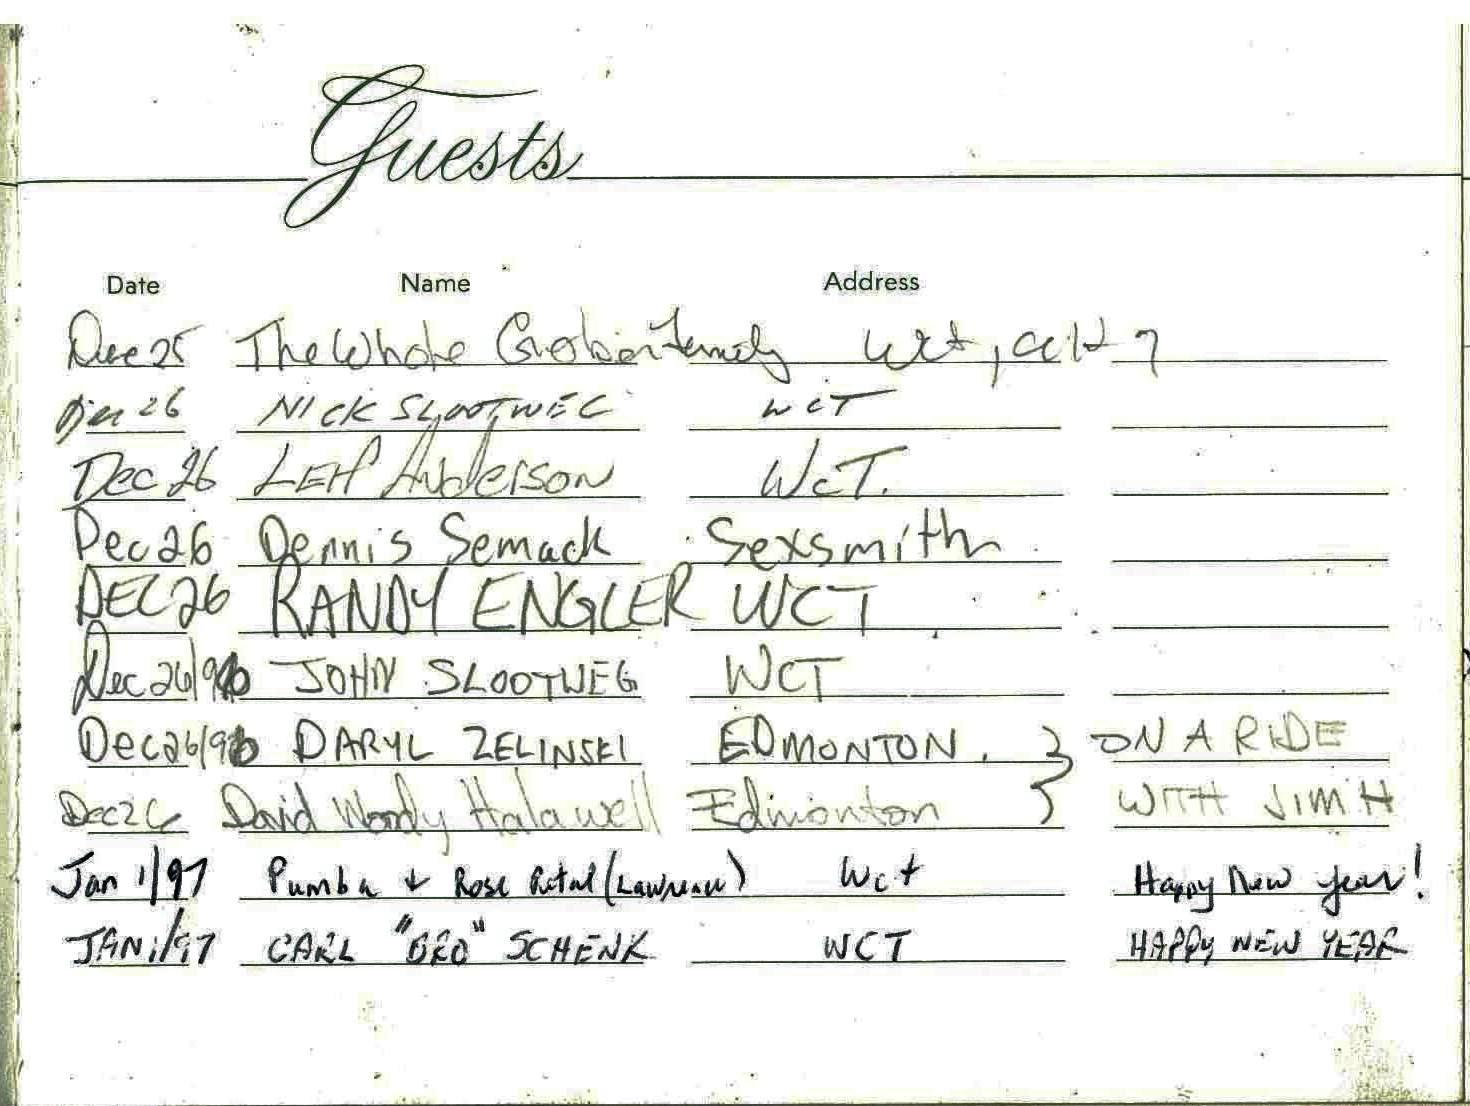 Guests
Date Name Address
Dec 25 The Whole Family Wct,
Dec 26 NICK SLOOTWEG WCT
Dec 26 LEIF Anderson WCT.
Dec 26 Dennis Semack Sexsmith
DEC 26 RANDY ENGLER WCT
Dec 26/96 JOHN SLOOTWEG WCT
Dec 26/96 DARYL ZELINSKI EDMONTON. } ON A RIDE
Dec 26 David Woody Halawell Edmonton } WITH JIM H
Jan 1/97 Pumba + Rose (Lawrence) Wct Happy New Year!
JAN 1/97 CARL "BRO" SCHENK WCT HAPPY NEW YEAR